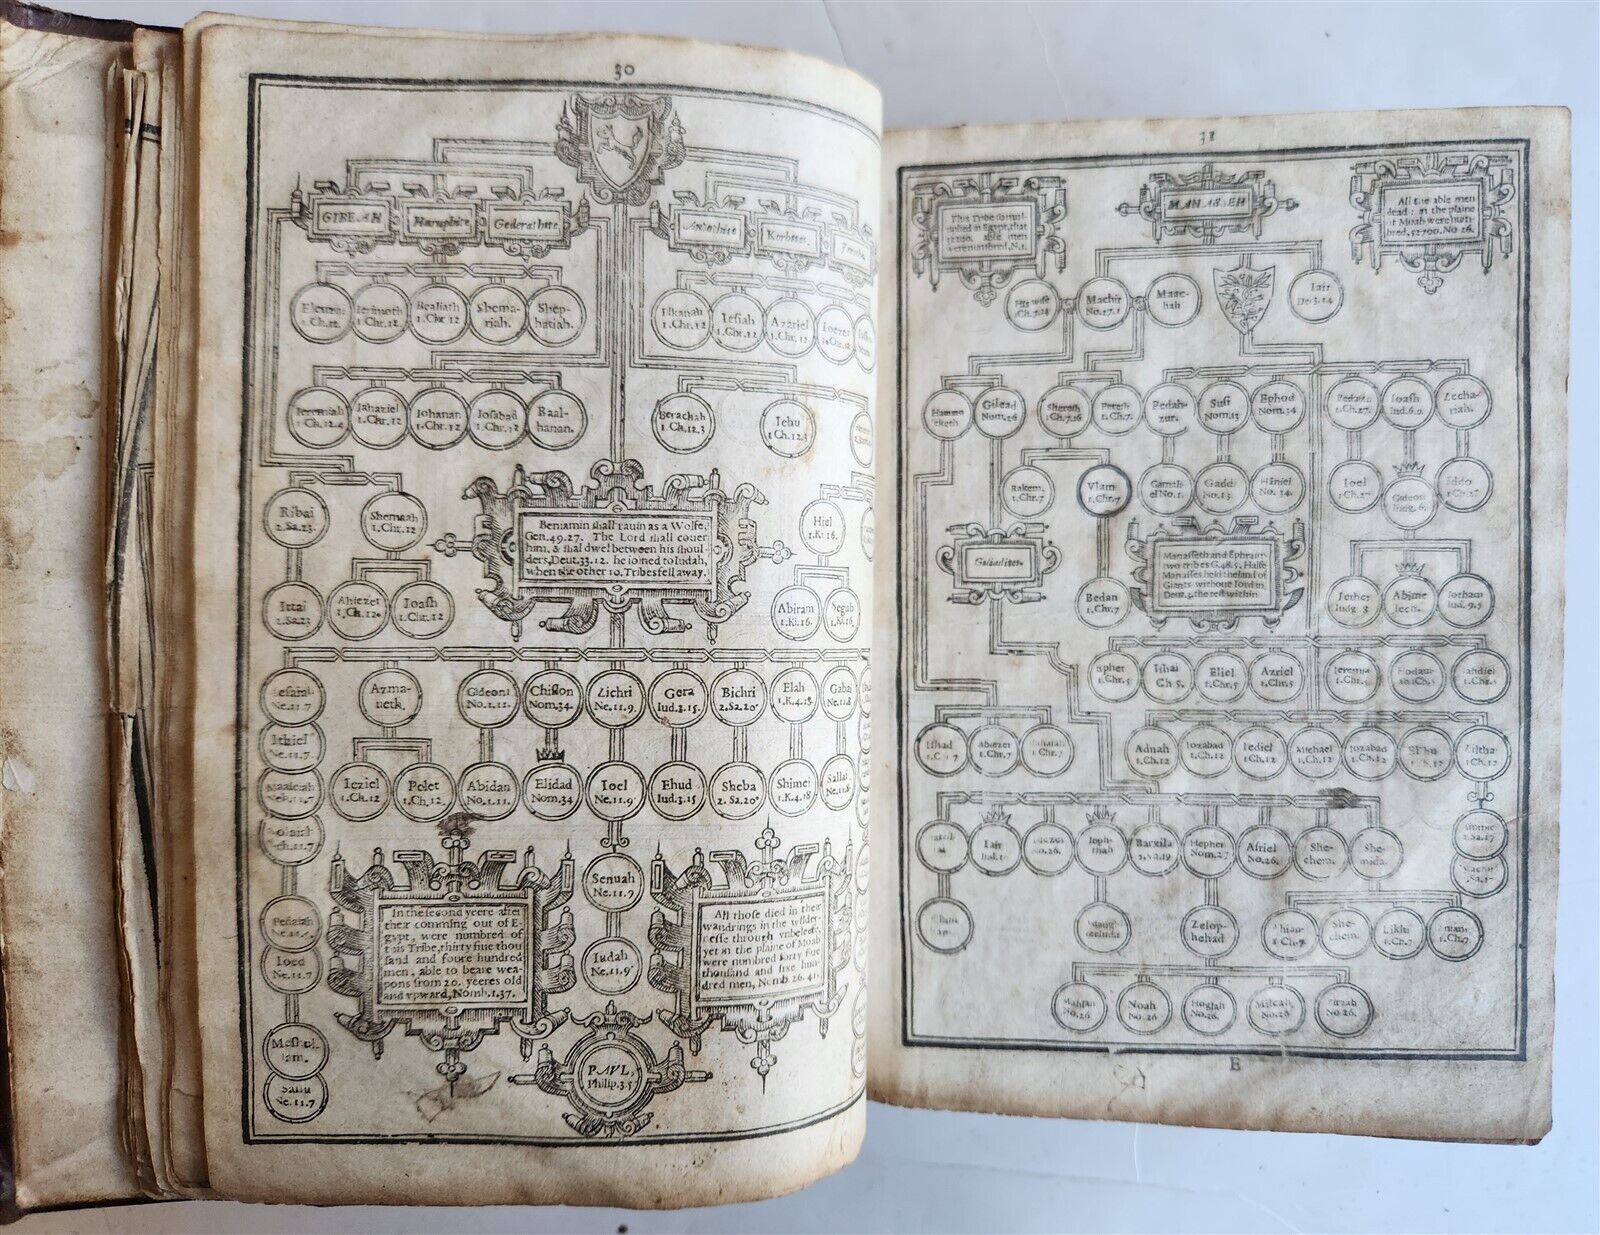 30
GIBEAH
Haruphite
Gederathite
Antothite
Korhites
Eleuzai
1.Ch.12
Ierimoth
1.Chr.12
Bealiath
1.Chr 12
Shema-
riah.
Shep-
hatiah.
Elkanah
1.Chr.12
Iesiah
1.Chr.12
Azariel
1.Chr.12
Ioezer
Ieremiah
Iahaziel
1.Chr.12
Iohanan
1.Chr.12
Iosabad
1.Chr.12
Baal-
hanan.
Berachah
1 Ch.12.3
Iehu
1 Ch.12.3
Ribai
2.Sa.23.
Shemaah
1.Chr.12
Hiel
1.Ki 16.
Beniamin shall rauin as a Wolfe,
Gen.49.27. The Lord shall couer
him, & shal dwel between his shoul-
ders, Deut.33.12. he ioined to Iudah,
when the other 10. Tribes fell away.
Ittai
2.Sa.23
Ahiezer
1.Ch.12.
Ioash
1.Chr.12
Abiram
1.Ki.16.
Segub
1.Ki.16.
Ne.11.7
Azma-
neth.
Gideoni
No.1.11.
Chislon
Nom.34.
Zichri
Ne.11.9.
Gera
Iud.3.15.
Bichri
2.Sa.20
Elah
1.K.4.18.
Gabai
Ne.11.8
Ithiel
Ne.11.7.
Maaseiah
Neh.11.7
Ieziel
1.Ch.12
Pelet
1.Ch.12.
Abidan
No.1.11.
Elidad
Nom.34
Ioel
Ne.11.9
Ehud
Iud.3.15
Sheba
2. Sa.20
Shimei
1.K.4.18
Sallai
Ne.11.8
Kolaiah
Ne.11.7.
Pedaiah
Ioed
Ne.11.7
Senuah
Ne.11.9
Iudah
Ne.11.9
In the second yeere after
their comming out of E-
gypt, were numbred of
this Tribe, thirty fiue thou
sand and foure hundred
men, able to beare wea-
pons from 20. yeeres old
and vpward, Nomb.1.37.
All those died in their
wandrings in the wilder-
nesse through vnbeleefe,
yet in the plaine of Moab
were numbred forty fiue
thousand and sixe hun-
dred men, Nomb.26.41.
Meshul-
lam.
Sallu
Ne.11.7
PAVL,
Philip.3.5
31
This Tribe so mul-
tiplied in Egypt, that
32200. able men
were numbred, N.1.
MANASSEH
All the able men
dead: in the plaine
of Moab were num-
bred, 52700. No 26.
His wife
1.Ch.7.14
Machir
No.27.1
Maac-
hah
Iair
De.3.14
Hammo
leketh
Gilead
Nom.26
Sheresh
1 Ch.7.16
Peresh
1.Ch.7.
Pedah-
zur.
Susi
Nom.13
Ephod
Nom.34
Pedaiah
1.Ch.27.
Ioash
Iud.6.11
Zecha-
riah.
Rakem.
1.Chr.7
Vlam
1.Chr.7
Gamali-
el No.1.
Gaddi
No.13.
Haniel
No.34.
Ioel
1.Ch.27
Gideon
Iudg. 6.
Iddo
1.Ch.27
Gileadites
Manasseth and Ephraim
two tribes G.48.5. Halfe
Manasses held the land of
Giants without Iordan
Deut.3. the rest within
Bedan
1.Chr.7
Iether
Iudg. 8
Abime
lech.
Iotham
Iud.9.5
Epher
1.Chr.5
Ishai
Ch 5.
Eliel
1.Chr.5
Azriel
1.Chr.5
Ieremia
1.Chr.5
Hodaui-
ah 1Ch.5
Iahdiel
1.Chr.5
Ishad
1.Ch.7
Abiezer
1.Chr.7
Mahalah
1.Chr.7
Adnah
1.Ch.12
Iozabad
1.Ch.12
Iediel
1.Ch.12
Michael
1.Ch.12
Iozabad
1.Ch.12
Elihu
1.Ch.12
Ziltha
1.Ch.12
Iair
Iud.10
Iezer
No.26.
Ioph-
thah
Barzila
2.Sa.19
Hepher
Nom.27
Asriel
No.26.
She-
chem.
She-
mida.
Ammie
2.Sa.17
Machir
Zelop-
hehad
Ahian
1 Ch.7.
She-
chem.
Likhi
1.Ch.7
1.Ch.7.
Mahlah
No.26
Noah
No.26
Hoglah
No.26.
Milcah,
No.26
Tirzah
No 26.
E